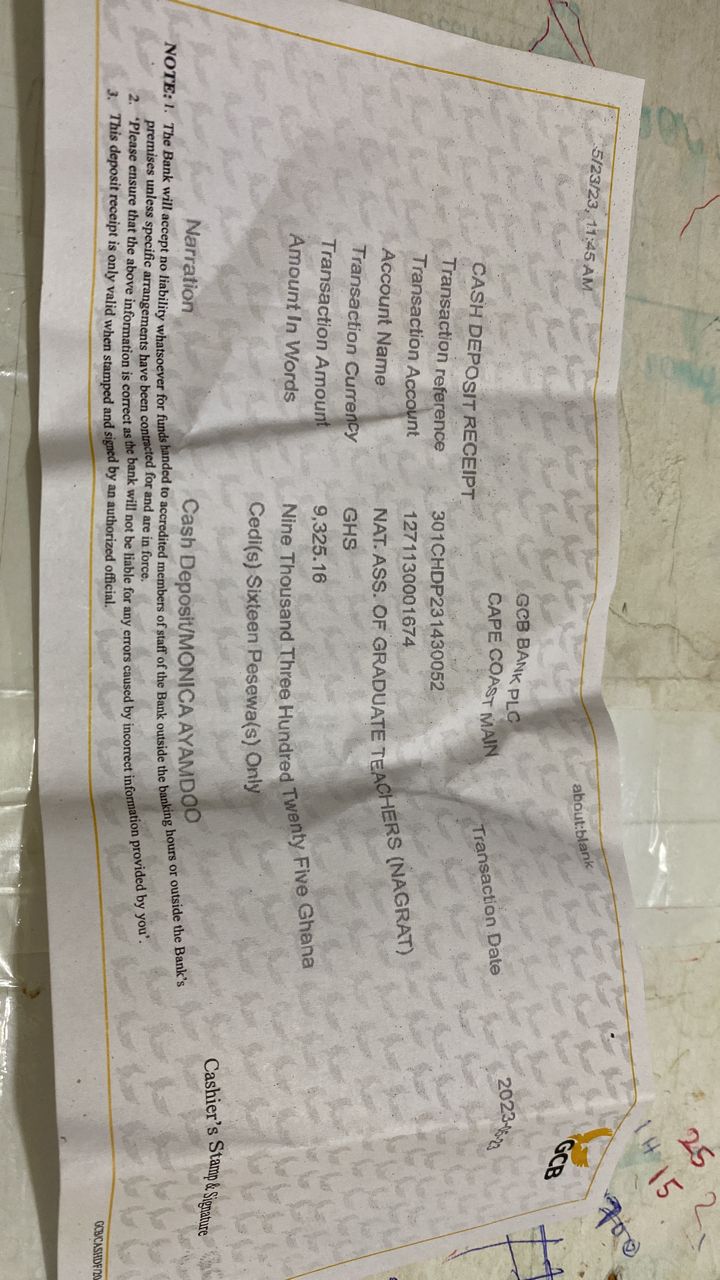 5/23/23, 11:45 AM
about:blank
GCB
GCB BANK PLC
CAPE COAST MAIN
CASH DEPOSIT RECEIPT Transaction Date
Transaction reference 301CHDP231430052
Transaction Account 1271130001674
Account Name NAT. ASS. OF GRADUATE TEACHERS (NAGRAT)
Transaction Currency GHS
Transaction Amount 9,325.16
Amount In Words Nine Thousand Three Hundred Twenty Five Ghana
Cedi(s) Sixteen Pesewa(s) Only
Narration Cash Deposit/MONICA AYAMDOO
Cashier's Stamp & Signature
NOTE: 1. The Bank will accept no liability whatsoever for funds handed to accredited members of staff of the Bank outside the banking hours or outside the Bank's
premises unless specific arrangements have been contracted for and are in force.
2. 'Please ensure that the above information is correct as the bank will not be liable for any errors caused by incorrect information provided by you'.
3. This deposit receipt is only valid when stamped and signed by an authorized official.
25
15